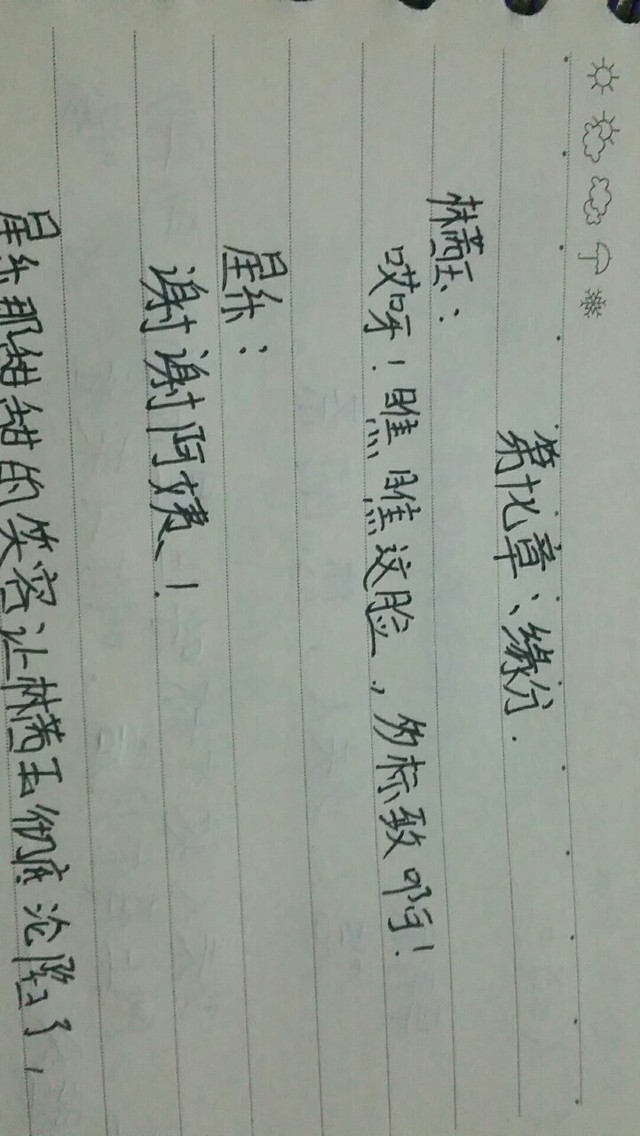 第七章、缘分.
林茜玉:
哎呀!瞧瞧这脸,多标致啊!
星乐:
谢谢阿姨!
星乐那甜甜的笑容让林茜玉彻底沦陷了,